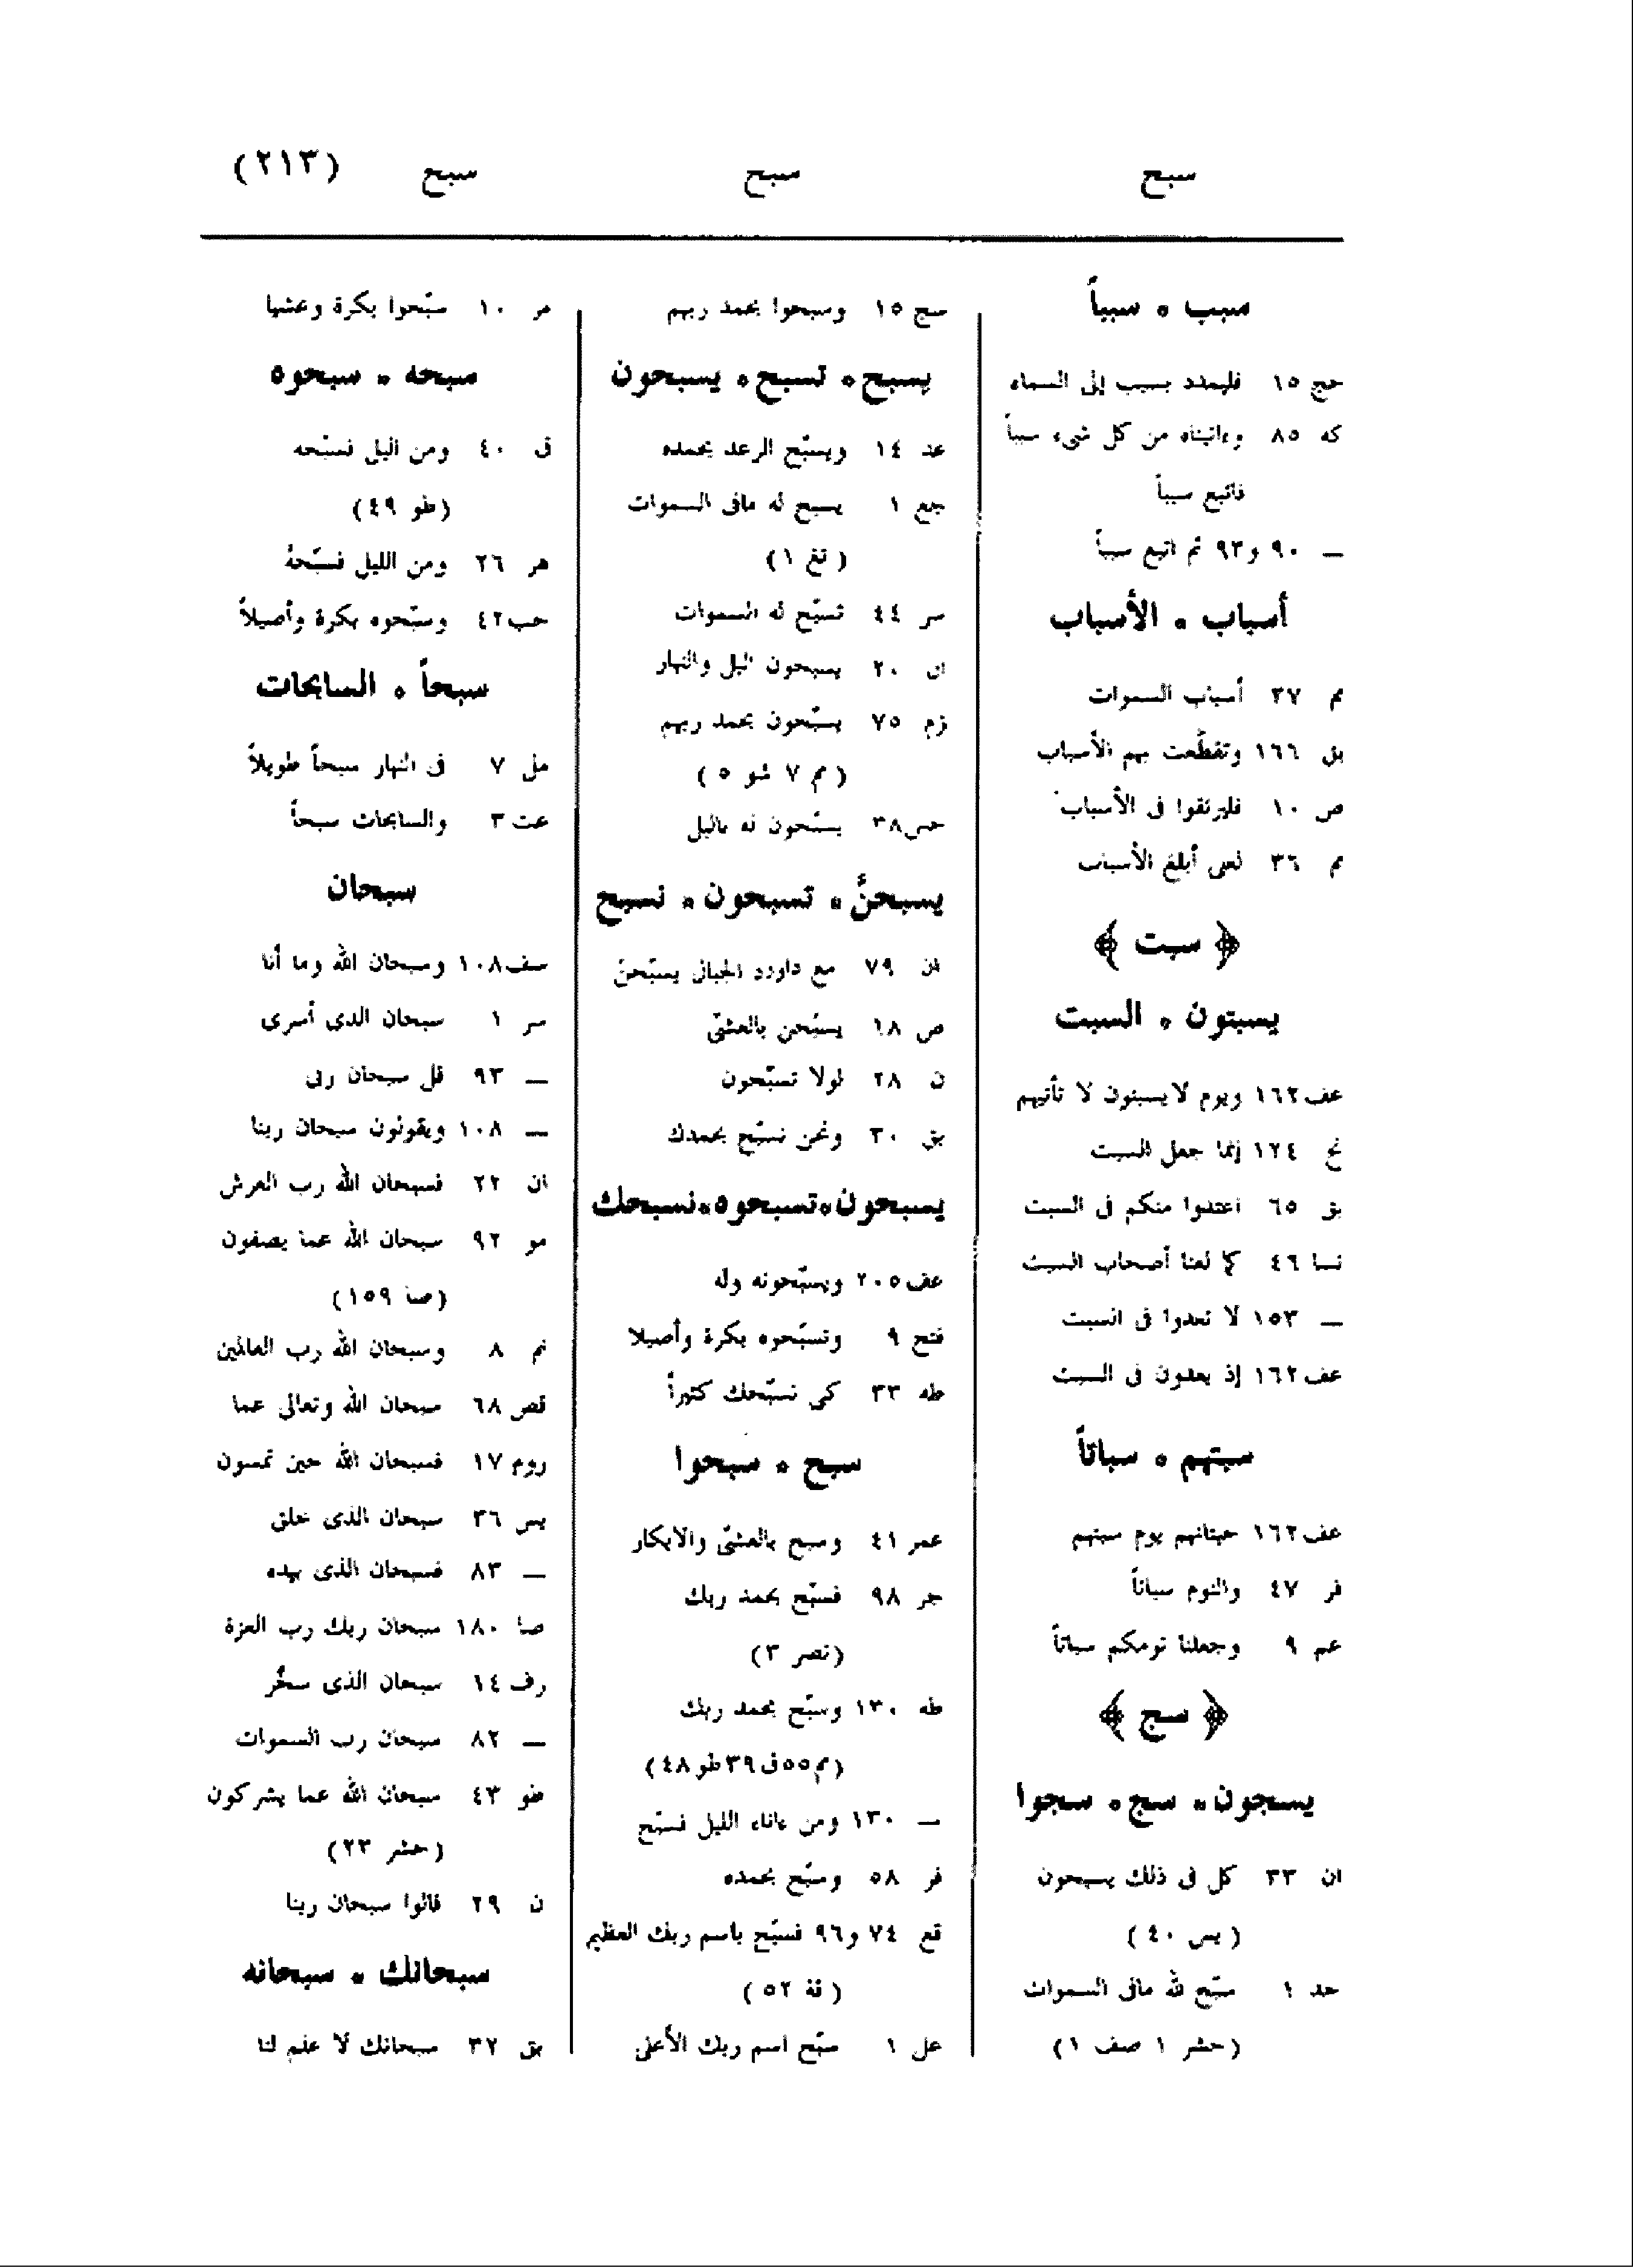 سبح
سبح
سبح
(٢١٣)
سبب ٥ سبباً
حج ١٥ فليمدد بسبب إلى السماء
كه ٨٥ وءاتيناه من كل شىء سبباً
فاتبع سبباً
ــ ٩٠ و٩٣ ثم اتبع سبباً
أسباب ٥ الأسباب
مم ٣٧ أسباب السموات
بق ١٦٦ وتقطّعت بهم الأسباب
ص ١٠ فليرتقوا فى الأسباب
مم ٣٦ لعلى أبلغ الأسباب
﴿ سبت ﴾
يسبتون ٥ السبت
عف ١٦٢ ويوم لايسبتون لا تأتيهم
نح ١٢٤ إنما جعل السبت
بق ٦٥ اعتدوا منكم فى السبت
نسا ٤٦ كما لعنا أصحاب السبت
ــ ١٥٣ لا تعدوا فى السبت
عف ١٦٢ إذ يعدون فى السبت
سبتهم ٥ سباتاً
عف ١٦٢ حيتانهم يوم سبتهم
فر ٤٧ والنوم سباتاً
عم ٩ وجعلنا نومكم سباتاً
﴿ سبح ﴾
يسبحون ٥ سبح ٥ سبحوا
ان ٣٣ كل فى فلك يسبحون
( يس ٤٠ )
حد ١ سبّح لله مافى السموات
( حشر ١ صف ١ )
سج ١٥ وسبحوا بحمد ربهم
يسبح ٥ تسبح ٥ يسبحون
عد ١٤ ويسبّح الرعد بحمده
جع ١ يسبح له مافى السموات
( تغ ١ )
سر ٤٤ تسبّح له السموات
ان ٢٠ يسبحون اليل والنهار
زم ٧٥ يسبّحون بحمد ربهم
( مم ٧ شو ٥ )
حس ٣٨ يسبّحون له باليل
يسبحنّ ٥ تسبحون ٥ نسبح
ان ٧٩ مع داوود الجبال يسبّحن
ص ١٨ يسبّحن بالعشىّ
ن ٢٨ لولا تسبّحون
بق ٣٠ ونحن نسبّح بحمدك
يسبحون ٥ تسبحوه ٥ نسبحك
عف ٢٠٥ ويسبّحونه وله
فتح ٩ وتسبّحوه بكرة وأصيلا
طه ٣٣ كى نسبّحك كثيراً
سبح ٥ سبحوا
عمر ٤١ وسبح بالعشىّ والابكار
جر ٩٨ فسبّح بحمد ربك
( نصر ٣ )
طه ١٣٠ وسبّح بحمد ربك
( مم ٥٥ ق ٣٩ طو ٤٨ )
ــ ١٣٠ ومن ءاناء الليل فسبّح
فر ٥٨ وسبّح بحمده
قع ٧٤ و٩٦ فسبّح باسم ربك العظيم
( قة ٥٢ )
عل ١ سبّح اسم ربك الأعلى
مر ١٠ سبّحوا بكرة وعشيا
سبحه ٥ سبحوه
ق ٤٠ ومن اليل فسبّحه
( طو ٤٩ )
هر ٢٦ ومن الليل فسبّحهُ
حب ٤٢ وسبّحوه بكرة وأصيلاً
سبحاً ٥ السابحات
مل ٧ فى النهار سبحاً طويلاً
عت ٣ والسابحات سبحاً
سبحان
سف ١٠٨ وسبحان الله وما أنا
سر ١ سبحان الذى أسرى
ــ ٩٣ قل سبحان ربى
ــ ١٠٨ ويقولون سبحان ربنا
ان ٢٢ فسبحان الله رب العرش
مو ٩٢ سبحان الله عما يصفون
( صا ١٥٩ )
نم ٨ وسبحان الله رب العالمين
قص ٦٨ سبحان الله وتعالى عما
روم ١٧ فسبحان الله حين تمسون
يس ٣٦ سبحان الذى خلق
ــ ٨٣ فسبحان الذى بيده
صا ١٨٠ سبحان ربك رب العزة
رف ١٤ سبحان الذى سخّر
ــ ٨٢ سبحان رب السموات
طو ٤٣ سبحان الله عما يشركون
( حشر ٢٣ )
ن ٢٩ قالوا سبحان ربنا
سبحانك ٥ سبحانه
بق ٣٢ سبحانك لا علم لنا